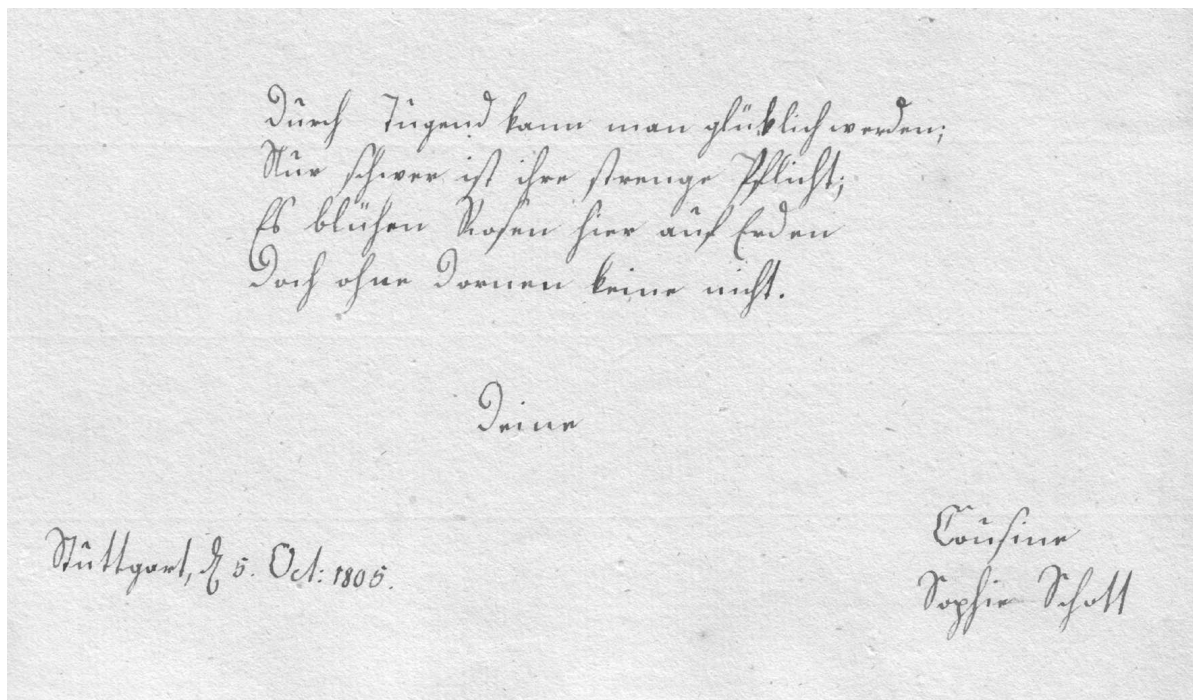 Durch Tugend kann man glüklich werden;
Nur schwer ist ihre strenge Pflicht;
Es blühen Rosen hier auf Erden
Doch ohne Dornen keine nicht.
Deine
Cousine
Stuttgart, d 5. Oct: 1805.
Sophie Schott